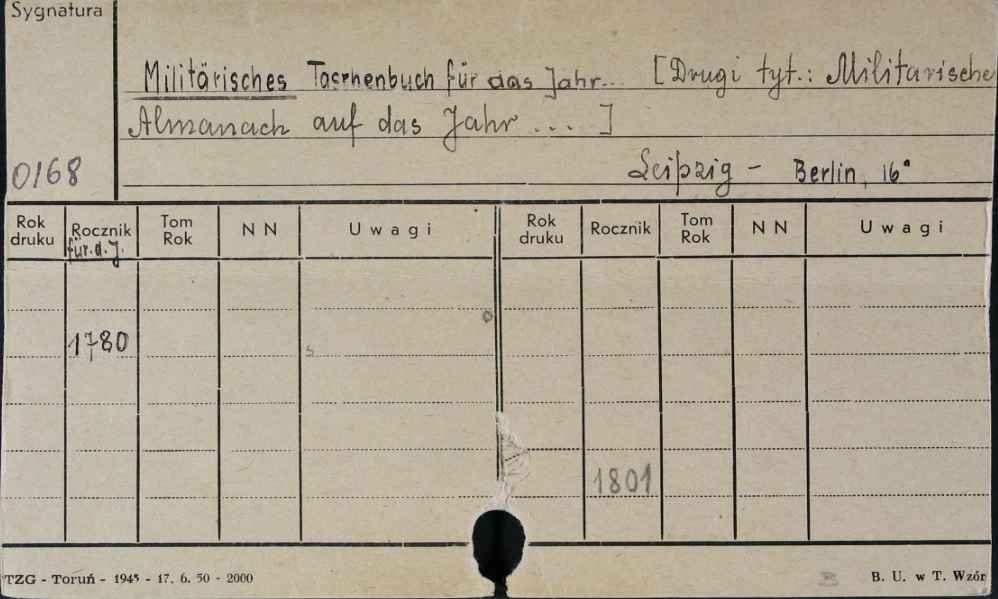 Sygnatura
Militärisches Taschenbuch für das Jahr... [Drugi tyt.: Militarische
Almanach auf das Jahr ... ]
0168
Leipzig - Berlin, 16°
Rok druku Rocznik für d. J. Tom Rok NN Uwagi Rok druku Rocznik Tom Rok NN Uwagi
1780
1801
TZG - Toruń - 1945 - 17. 6. 50 - 2000 B. U. w T. Wzór